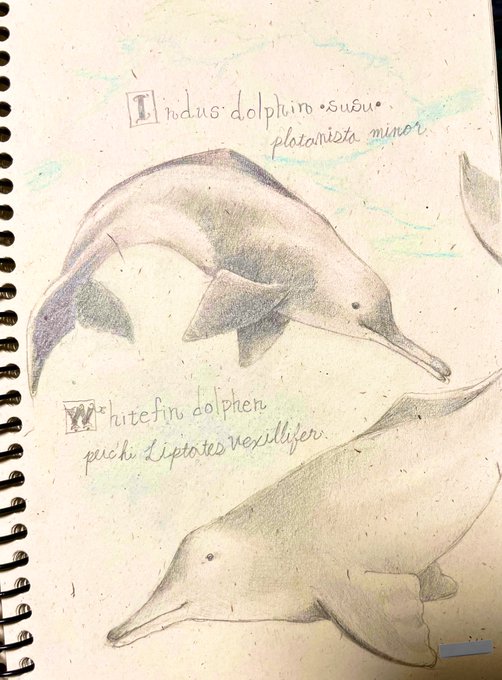 Indus·dolphin •susu•
platanista minor
Whitefin dolphen
peichi Liptotes vexillifer